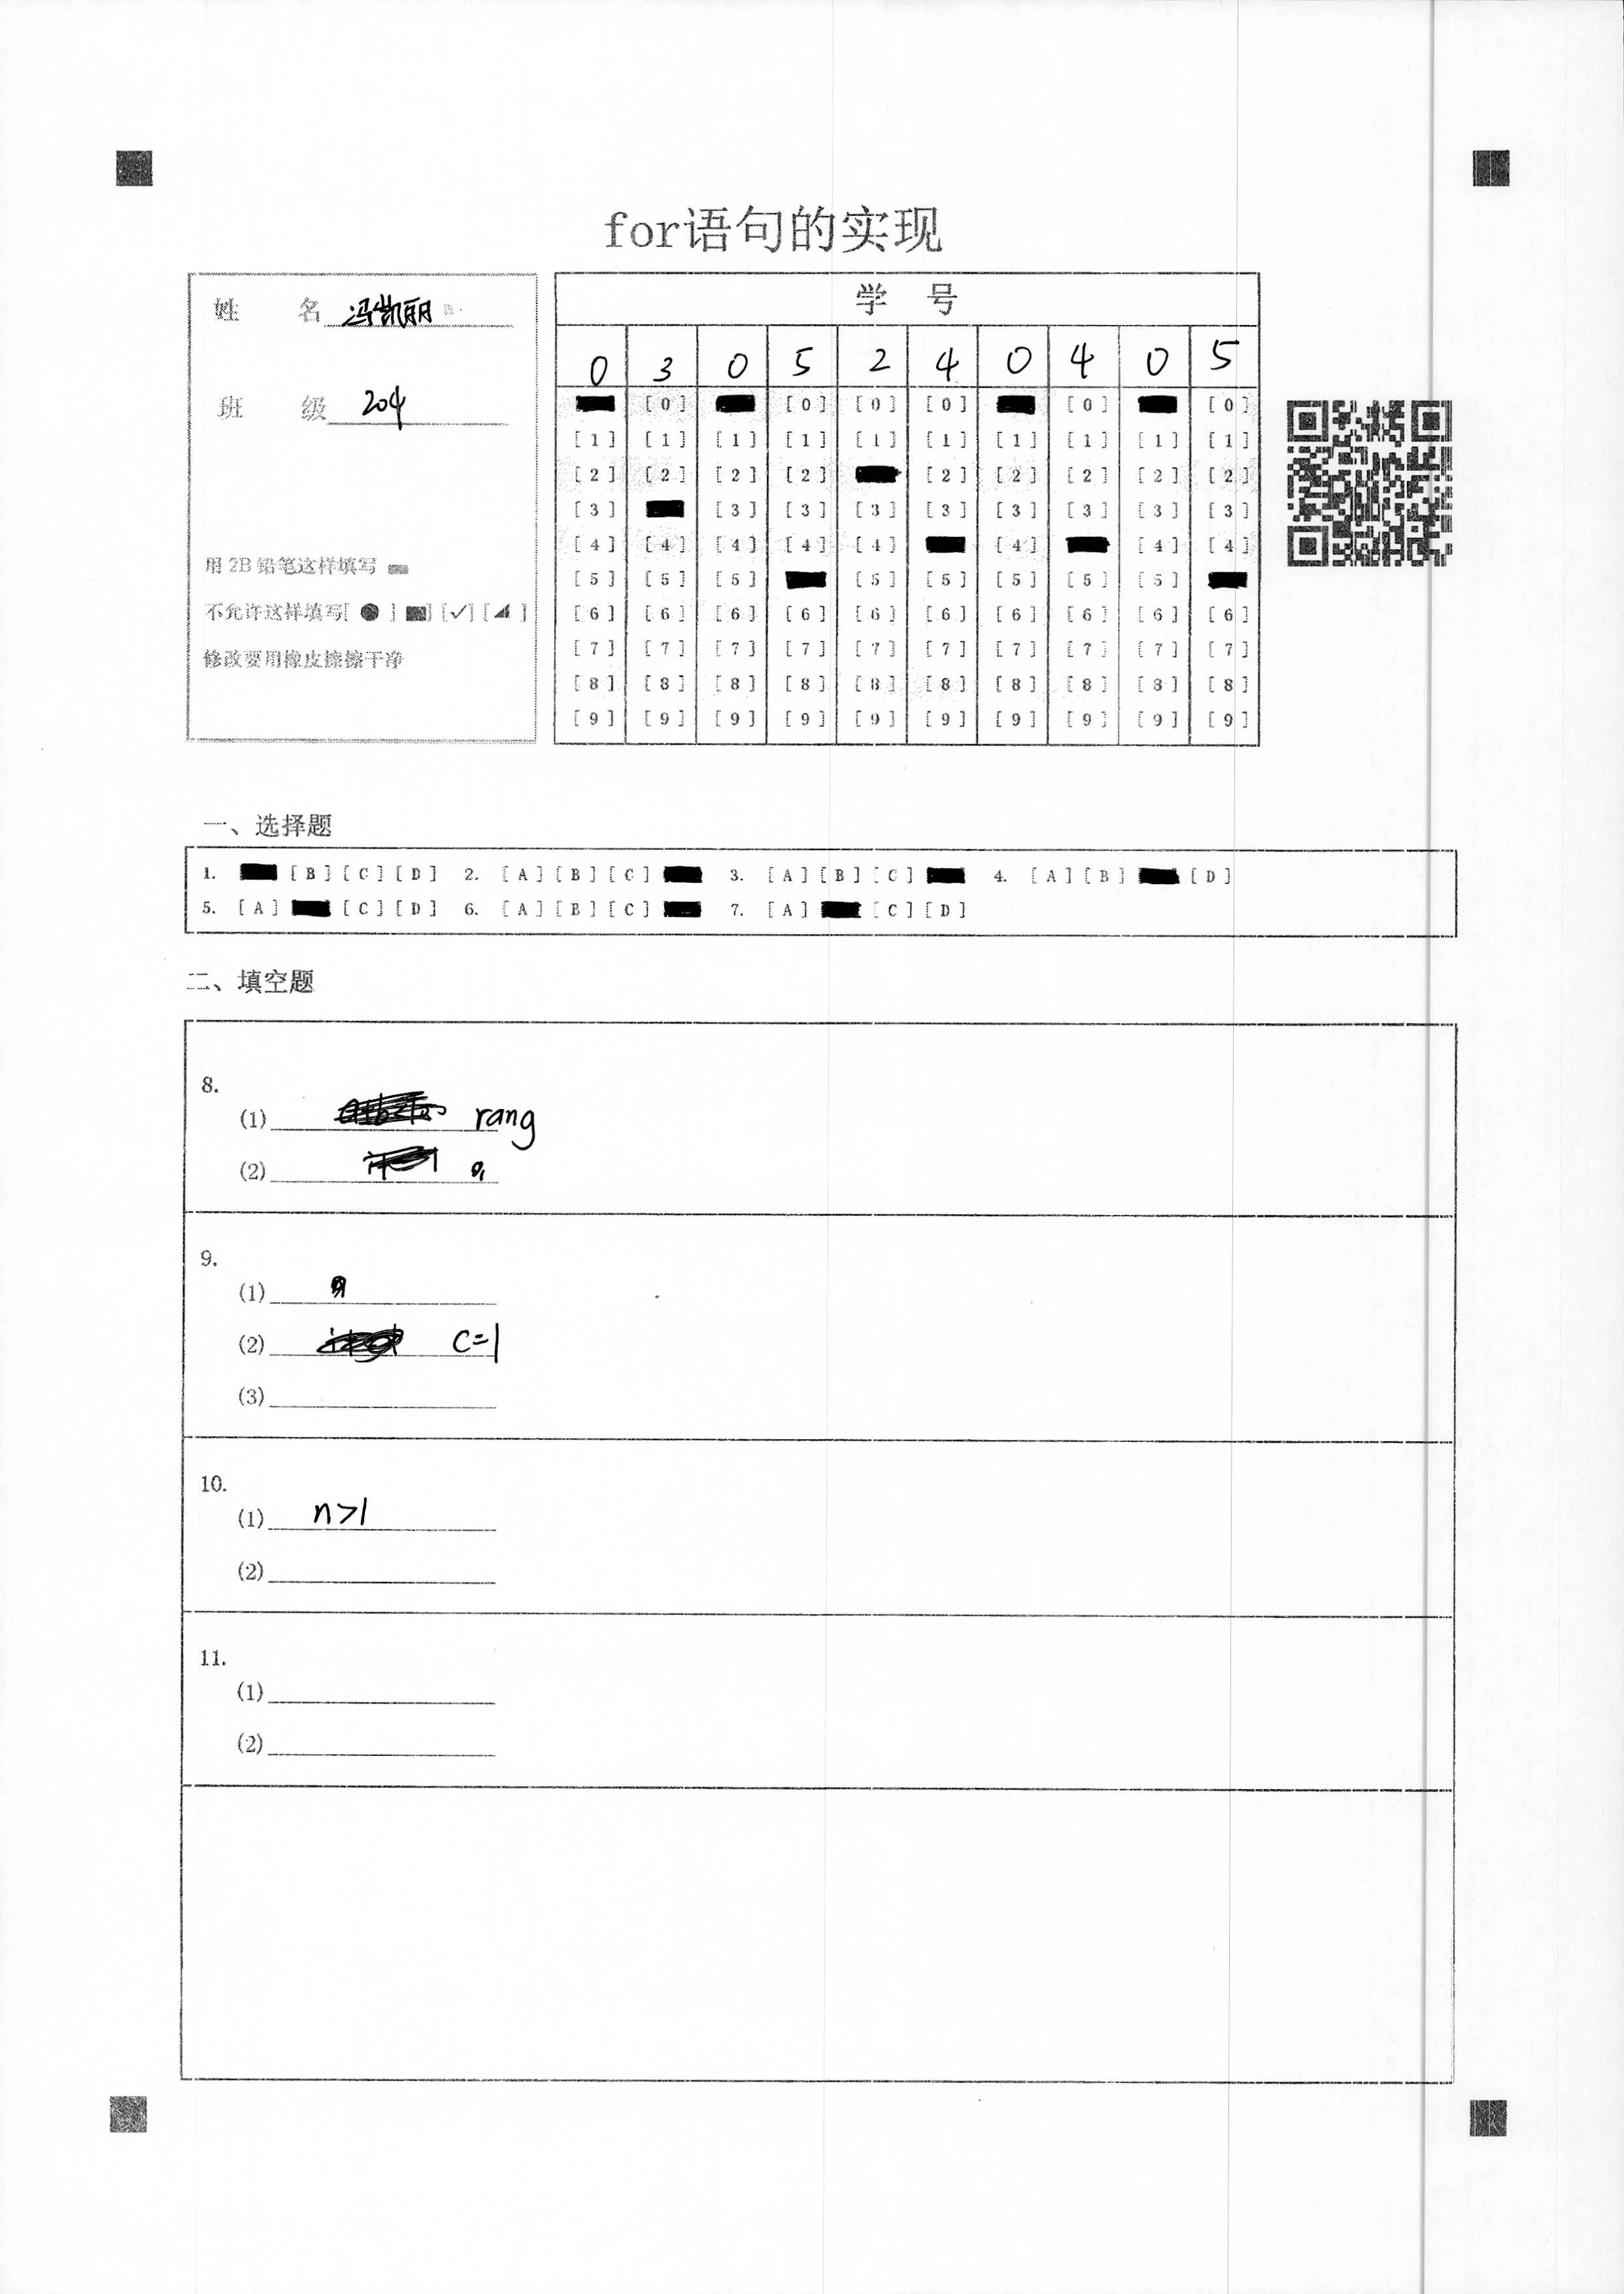 for语句的实现
姓 名 冯凯丽
班 级 204
用2B铅笔这样填写
不允许这样填写[ ● ] [✓] [ ]
修改要用橡皮擦擦干净
学 号
0 3 0 5 2 4 0 4 0 5
[0] [0] [0] [0] [0] [0]
[1] [1] [1] [1] [1] [1] [1] [1] [1] [1]
[2] [2] [2] [2] [2] [2] [2] [2] [2]
[3] [3] [3] [3] [3] [3] [3] [3] [3]
[4] [4] [4] [4] [4] [4] [4] [4]
[5] [5] [5] [5] [5] [5] [5] [5]
[6] [6] [6] [6] [6] [6] [6] [6] [6] [6]
[7] [7] [7] [7] [7] [7] [7] [7] [7] [7]
[8] [8] [8] [8] [8] [8] [8] [8] [8] [8]
[9] [9] [9] [9] [9] [9] [9] [9] [9] [9]
一、选择题
1. [B] [C] [D] 2. [A] [B] [C] 3. [A] [B] [C] 4. [A] [B] [D]
5. [A] [C] [D] 6. [A] [B] [C] 7. [A] [C] [D]
二、填空题
8.
(1) rang
(2)
9.
(1)
(2) c=1
(3)
10.
(1) n>1
(2)
11.
(1)
(2)